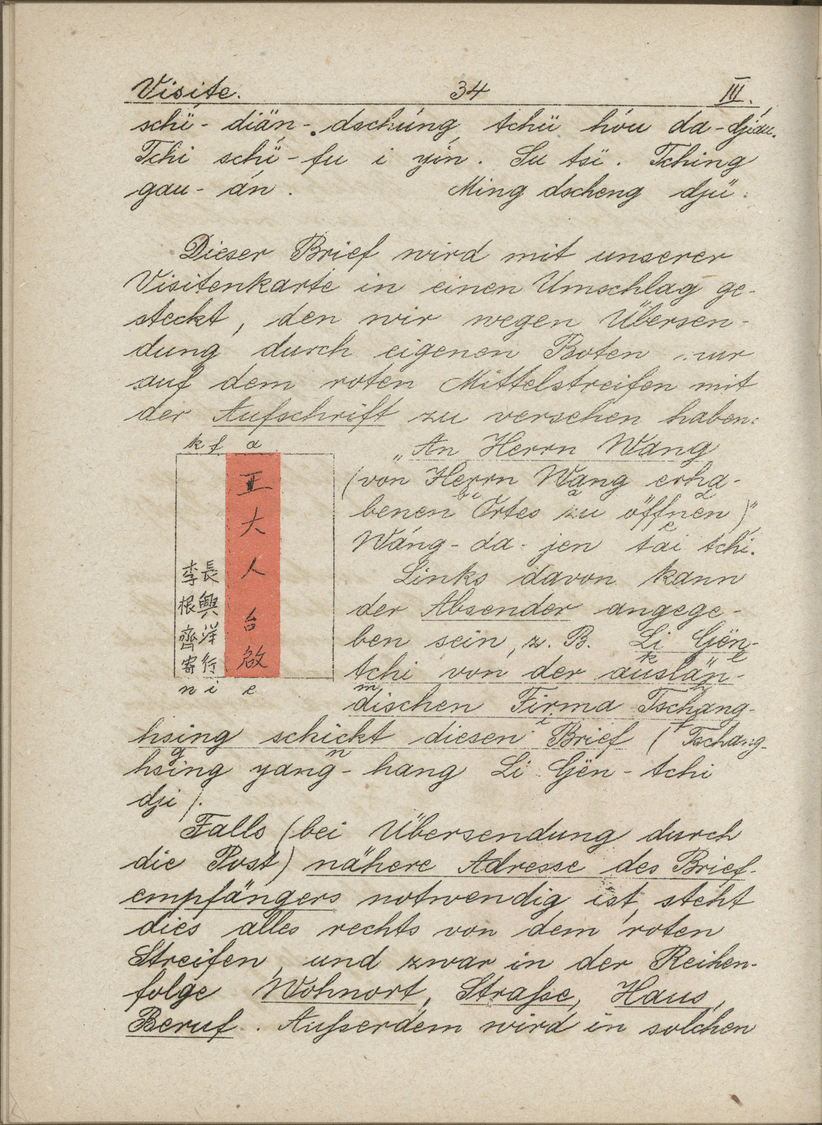 Visite. 34 III.
schï- diän- dschúng tchü hóu da-djiau.
Tchi schï-fu i yin. Su tsï. Tching
gau- án. Ming dscheng djü:
Dieser Brief wird mit unserer
Visitenkarte in einen Umschlag ge-
steckt, den wir wegen Übersen-
dung durch eigenen Boten nur
auf dem roten Mittelstreifen mit
der Aufschrift zu versehen haben:
k f a
王大人台啟
長興洋行
李根齊寄
n i e
„An Herrn Wang
(von Herrn Wang erha-
benen Ortes zu öffnen)"
Wáng-da-jen tai tchi.
Links davon kann
der Absender angege-
ben sein, z. B. Li Gën-
tchi von der auslän-
dischen Firma Tschang-
hsing schickt diesen Brief (Tschang-
hsing yang-hang Li Gën-tchi
dji).
Falls (bei Übersendung durch
die Post) nähere Adresse des Brief-
empfängers notwendig ist, steht
dies alles rechts von dem roten
Streifen und zwar in der Reihen-
folge Wohnort, Straße, Haus,
Beruf. Außerdem wird in solchen